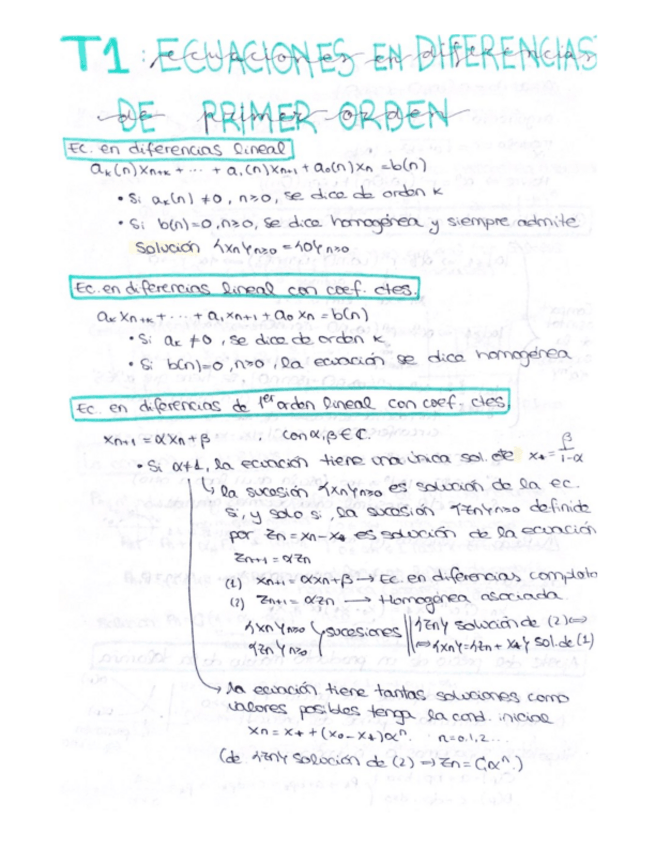 T1: ECUACIONES EN DIFERENCIAS
DE PRIMER ORDEN
Ec. en diferencias lineal
aₖ(n)xₙ₊ₖ + ... + a₁(n)xₙ₊₁ + a₀(n)xₙ = b(n)
• Si aₖ(n) ≠ 0, n≥0, se dice de orden k
• Si b(n)=0, n≥0, se dice homogénea y siempre admite
solución {xₙ}ₙ≥₀ = {0}ₙ≥₀
Ec. en diferencias lineal con coef. ctes.
aₖxₙ₊ₖ + ... + a₁xₙ₊₁ + a₀xₙ = b(n)
• Si aₖ ≠ 0, se dice de orden k
• Si b(n)=0, n≥0, la ecuación se dice homogénea
Ec. en diferencias de 1er orden lineal con coef. ctes.
xₙ₊₁ = αxₙ + β, con α,β ∈ ℂ.
• Si α≠1, la ecuación tiene una única sol. cte x* = β/(1-α)
↳ la sucesión {xₙ}ₙ≥₀ es solución de la ec.
si, y solo si, la sucesión {zₙ}ₙ≥₀ definida
por zₙ = xₙ - x* es solución de la ecuación
zₙ₊₁ = αzₙ
(1) xₙ₊₁ = αxₙ + β → Ec. en diferencias completa
(2) zₙ₊₁ = αzₙ → Homogénea asociada
{xₙ}ₙ≥₀ } sucesiones || {zₙ} solución de (2) ⇔
{zₙ}ₙ≥₀ } || ⇔ {xₙ} = {zₙ + x*} sol. de (1)
→ la ecuación tiene tantas soluciones como
valores posibles tenga la cond. inicial
xₙ = x* + (x₀ - x*)αⁿ, n = 0,1,2...
(de {zₙ} solución de (2) → zₙ = C·αⁿ)